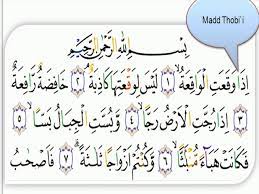 Madd Thobi'i
بِسْمِ اللَّهِ الرَّحْمَٰنِ الرَّحِيمِ
إِذَا وَقَعَتِ الْوَاقِعَةُ ۝١ لَيْسَ لِوَقْعَتِهَا كَاذِبَةٌ ۝٢ خَافِضَةٌ رَّافِعَةٌ
۝٣ إِذَا رُجَّتِ الْأَرْضُ رَجًّا ۝٤ وَبُسَّتِ الْجِبَالُ بَسًّا ۝٥
فَكَانَتْ هَبَاءً مُّنْبَثًّا ۝٦ وَكُنْتُمْ أَزْوَاجًا ثَلَاثَةً ۝٧ فَأَصْحَٰبُ